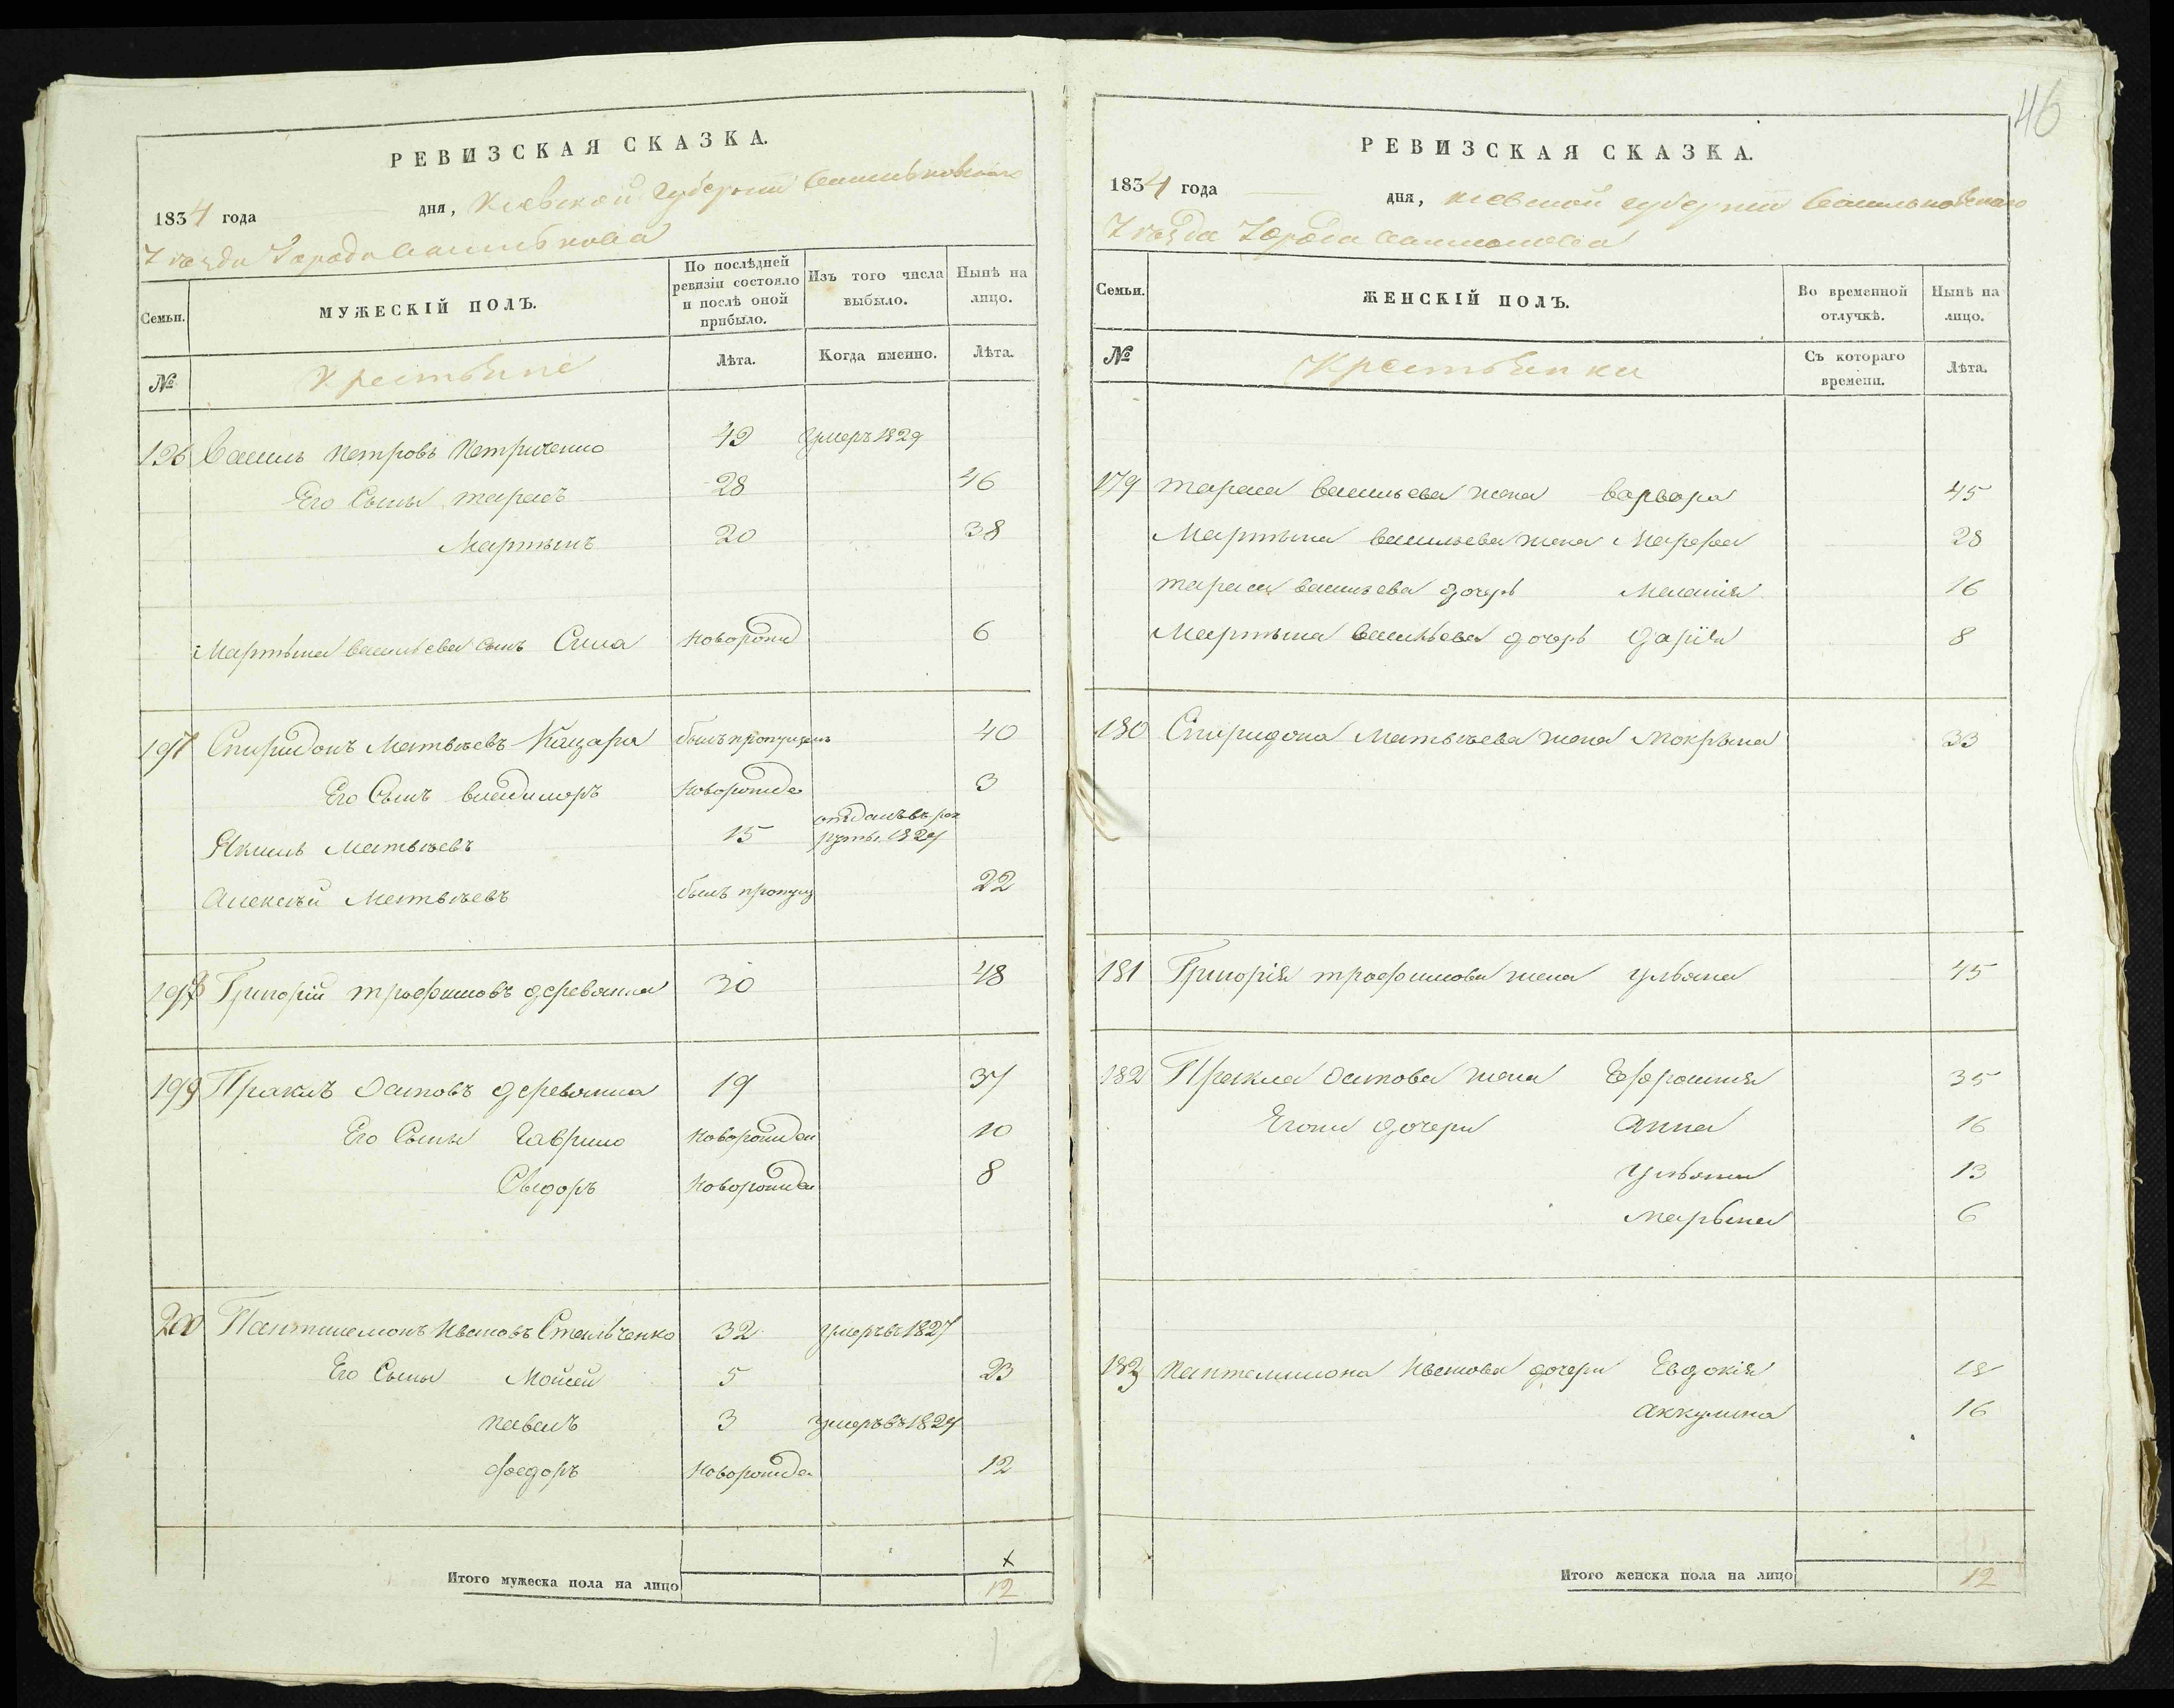 РЕВИЗСКАЯ СКАЗКА.
1834 года дня, Кіевской губерніи Васильковскаго
Уѣзда Города Василькова
Семьи.
МУЖЕСКІЙ ПОЛЪ.
По послѣдней
ревизіи состояло
и послѣ оной
прибыло.
Изъ того числа
выбыло.
Нынѣ на
лицо.
№
Крестьяне
Лѣта.
Когда именно.
Лѣта.
196 Василь Петровъ Петриченко 49 умеръ 1829
Его Сыны тарасъ 28 46
Мартынъ 20 38
Мартына васильева сынъ Сила новорожд 6
197 Спиридонъ Матвѣевъ Кацара былъ пропущенъ 40
Его Сынъ владиморъ новорожде 3
отданъ въ рек
Якимъ Матвѣевъ 15 руты 1827
Алексѣй Матвѣевъ былъ пропущ 22
198 Григорій трофимовъ деревянка 30 48
199 Праклъ Осиповъ деревянка 19 37
Его Сыны Гаврило новорожден 10
Сыдоръ новорожден 8
200 Пантилемонъ Ивановъ Стальченко 32 умеръ въ 1827
Его Сыны Мойсей 5 23
павелъ 3 умеръ въ 1827
федоръ новорожде 12
Итого мужеска пола на лицо
х
12
46
РЕВИЗСКАЯ СКАЗКА.
1834 года дня, Кіевской губерніи Васильковскаго
Уѣзда Города Василькова
Семьи.
ЖЕНСКІЙ ПОЛЪ.
Во временной
отлучкѣ.
Нынѣ на
лицо.
№
Крестьянки
Съ котораго
времени.
Лѣта.
179 тараса васильева жена варвара 45
Мартына васильева жена Марфа 28
тараса васильева дочерь Меланія 16
Мартына васильева дочерь дарія 8
180 Спиридона Матвѣева жена Мокрына 33
181 Григорія трофимова жена ульяна 45
182 Пракла Осипова жена Ефросинія 35
Егожи дочери Анна 16
ульяна 13
марына 6
183 Пантелимона Иванова дочери Евдокія 18
Аккулина 16
Итого женска пола на лицо
12